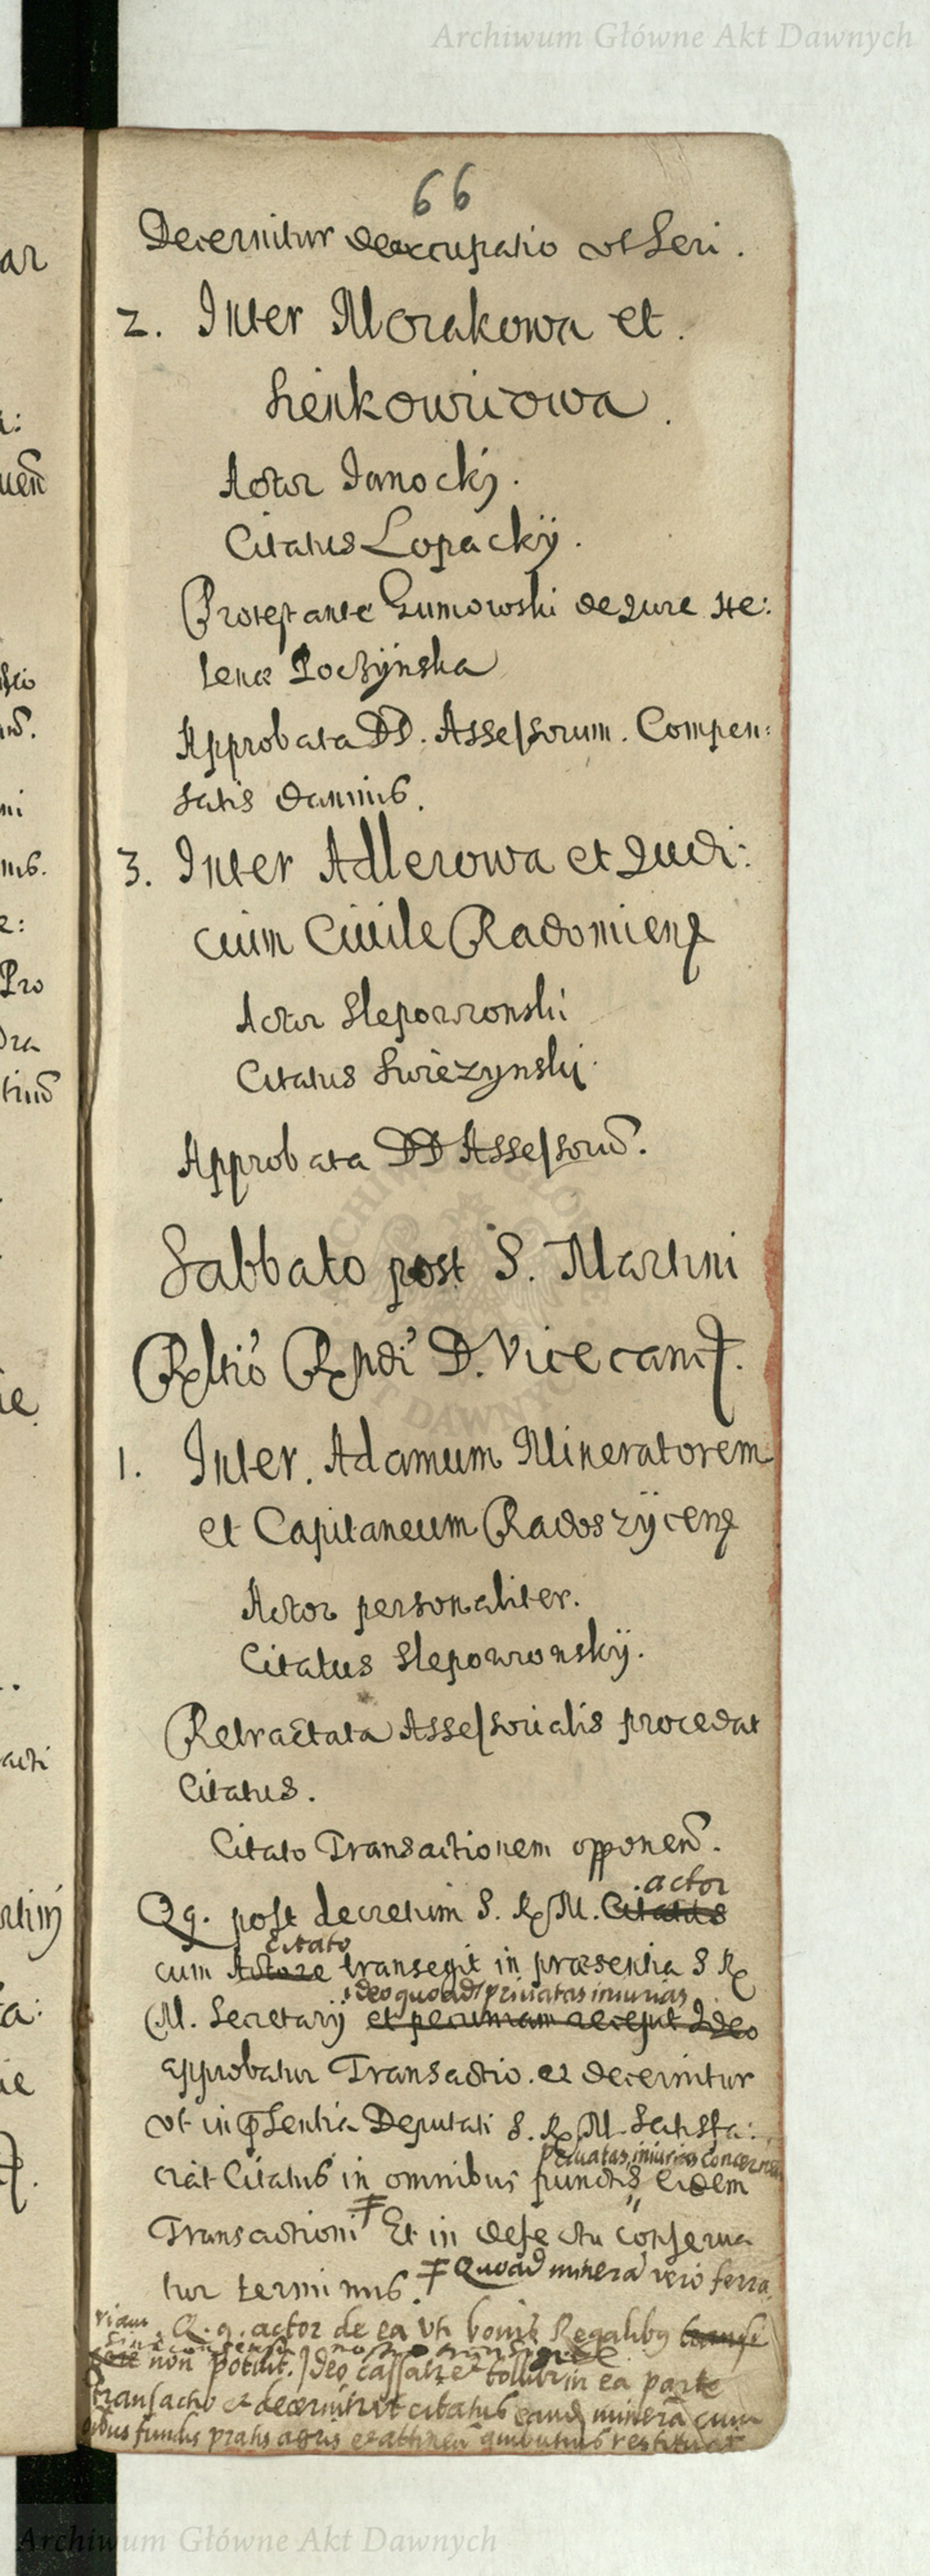 Archiwum Główne Akt Dawnych
66
Decernitur deoccupatio ut Seri.
2. Inter Morakowa et.
Sienkowicowa.
Actor Janockj.
Citatus Lopackÿ.
Protestante Gumowski de Jure He:
lenæ Poczÿnska
Approbata DD. Assessorum. Compen:
satis damnis.
3. Inter Adlerowa et Judi:
cium Ciuile Radomiens
Actor Slepowronski
Citatus Swiezynskj.
Approbata DD Assessorũ.
Sabbato post S. Martini
Rltio Rndi D. Vicecanc.
1. Inter. Adamum Mineratorem
et Capitaneum Radoszÿcens
Actor personaliter.
Citatus Slepowronskÿ.
Retractata Assessorialis procedat
Citatus.
Citato Transactionem opponen.
actor
Qq. post decretum S. R. M. Citatus
citato
cum Actore transegit in præsentia S R
ideo quoad privatas iniurias
M. Secretarÿ et pecuniam recepit Ideo
approbatur Transactio. et decernitur
ut in pſentia Deputati S. R. M. Satisfa:
privatas iniurias concernen
ciat Citatus in omnibus punctis eidem
Transactioni Et in defectu conserua
tur terminus. Quoad minera vero ferra
riam Q. q. actor de ea uti bonis Regalibus transi
sine consensu
non potuit. Ideo cassatur et tollitur in ea parte
transactio et decernit ut citatus eand minera cum
fundis pratis agris et attinen quibusuis restituat
Archiwum Główne Akt Dawnych